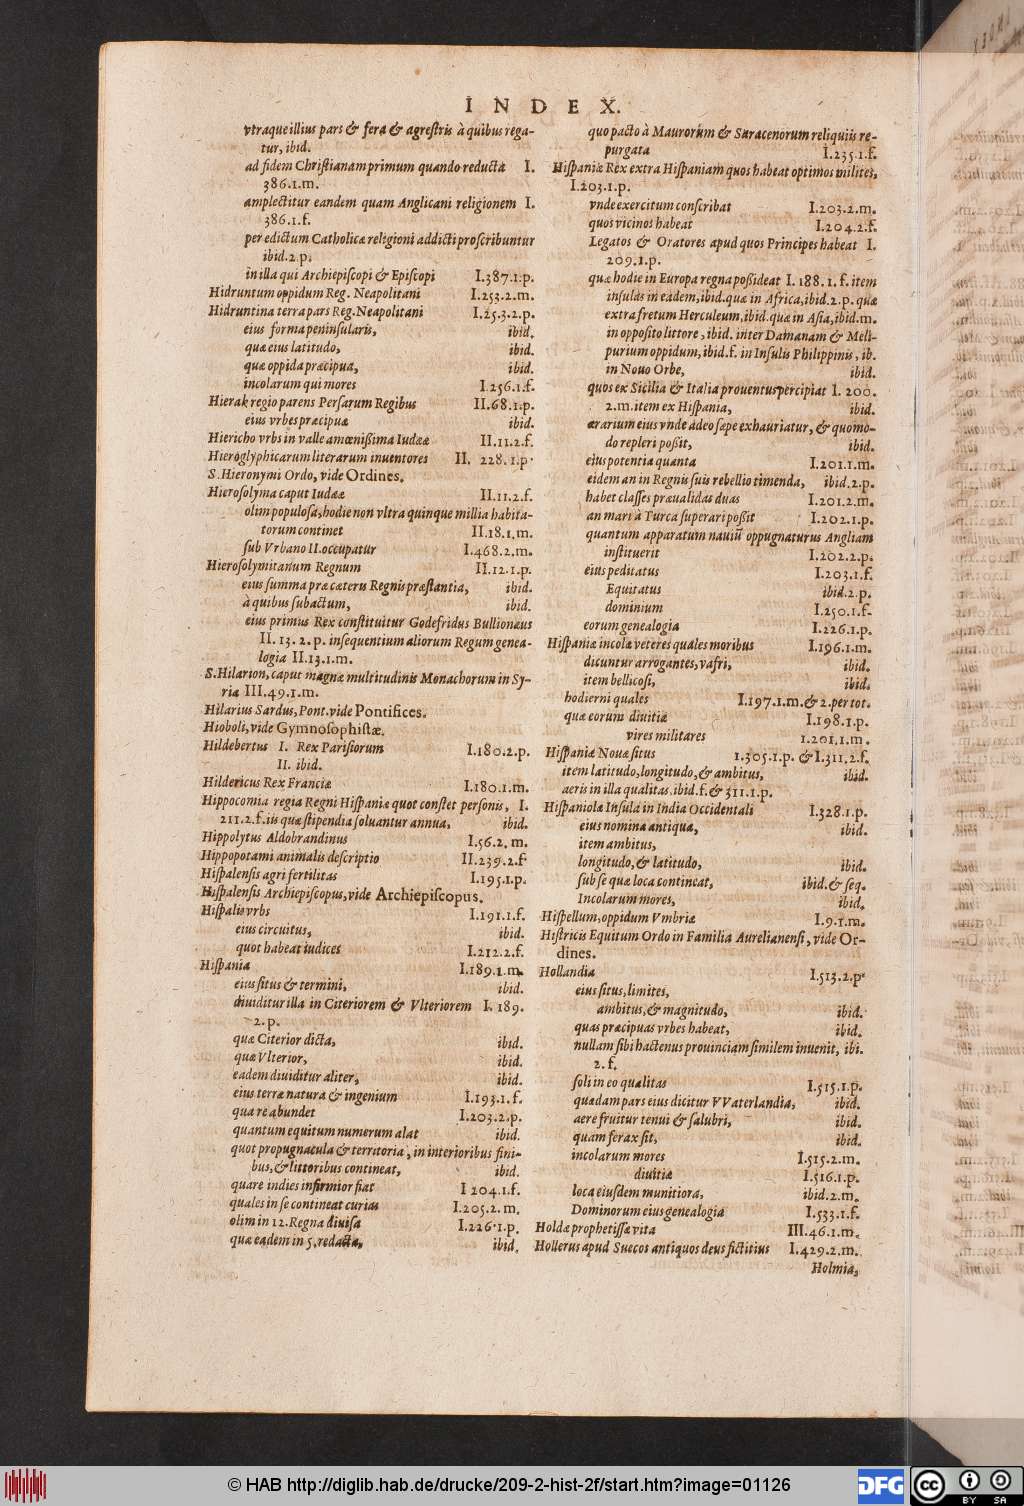 INDEX.
vtraque illius pars & fera & agrestris à quibus rega-
tur, ibid.
ad fidem Christianam primum quando reducta I.
386.1.m.
amplectitur eandem quam Anglicani religionem I.
386.1.f.
per edictum Catholicæ religioni addicti proscribuntur
ibid.2.p.
in illa qui Archiepiscopi & Episcopi I.387.1.p.
Hidruntum oppidum Reg. Neapolitani I.253.2.m.
Hidruntina terra pars Reg. Neapolitani I.25.3.2.p.
eius forma peninsularis, ibid.
quæ eius latitudo, ibid.
quæ oppida præcipua, ibid.
incolarum qui mores I 256.1.f.
Hierak regio parens Persarum Regibus II.68.1.p.
eius vrbes præcipuæ ibid.
Hiericho vrbs in valle amœnißima Iudææ II.11.2.f.
Hieroglyphicarum literarum inuentores II. 228.1.p.
S.Hieronymi Ordo, vide Ordines.
Hierosolyma caput Iudææ II.11.2.f.
olim populosa, hodie non vltra quinque millia habita-
torum continet II.18.1.m.
sub Vrbano II.occupatur I.468.2.m.
Hierosolymitanum Regnum II.12.1.p.
eius summa præ cæteris Regnis præstantia, ibid.
à quibus subactum, ibid.
eius primus Rex constituitur Godefridus Bullionæus
II. 13. 2. p. insequentium aliorum Regum genea-
logia II.13.1.m.
S.Hilarion, caput magnæ multitudinis Monachorum in Sy-
ria III.49.1.m.
Hilarius Sardus, Pont. vide Pontifices.
Hioboli, vide Gymnosophistæ.
Hildebertus I. Rex Parisiorum I.180.2.p.
II. ibid.
Hildericus Rex Franciæ I.180.1.m.
Hippocomia regia Regni Hispaniæ quot constet personis, I.
211.2.f. iis quæ stipendia soluantur annua, ibid.
Hippolytus Aldobrandinus I.56.2.m.
Hippopotami animalis descriptio II.239.2.f
Hispalensis agri fertilitas I.195.1.p.
Hispalensis Archiepiscopus, vide Archiepiscopus.
Hispalis vrbs I.191.1.f.
eius circuitus, ibid.
quot habeat iudices I.212.2.f.
Hispania I.189.1.m.
eius situs & termini, ibid.
diuiditur illa in Citeriorem & Vlteriorem I. 189.
2.p.
quæ Citerior dicta, ibid.
quæ Vlterior, ibid.
eadem diuiditur aliter, ibid.
eius terræ natura & ingenium I.193.1.f.
qua re abundet I.203.2.p.
quantum equitum numerum alat ibid.
quot propugnacula & territoria, in interioribus fini-
bus, & littoribus contineat, ibid.
quare indies infirmior fiat I 204.1.f.
quales in se contineat curias I.205.2.m.
olim in 12. Regna diuisa I.226.1.p.
quæ eadem in 5. redacta, ibid.
quo pacto à Maurorum & Saracenorum reliquiis re-
purgata I.235.1.f.
Hispaniæ Rex extra Hispaniam quos habeat optimos milites,
I.203.1.p.
vnde exercitum conscribat I.203.2.m.
quos vicinos habeat I.204.2.f.
Legatos & Oratores apud quos Principes habeat I.
209.1.p.
quæ hodie in Europa regna poßideat I. 188. 1. f. item
insulas in eadem, ibid. quæ in Africa, ibid. 2. p. quæ
extra fretum Herculeum, ibid. quæ in Asia, ibid. m.
in opposito littore, ibid. inter Damanam & Meli-
purium oppidum, ibid. f. in Insulis Philippinis, ib.
in Nouo Orbe, ibid.
quos ex Sicilia & Italia prouentus percipiat I. 200.
2.m. item ex Hispania, ibid.
ærarium eius vnde adeo sæpe exhauriatur, & quomo-
do repleri poßit, ibid.
eius potentia quanta I.201.1.m.
eidem an in Regnis suis rebellio timenda, ibid.2.p.
habet classes præualidas duas I.201.2.m.
an mari à Turca superari poßit I.202.1.p.
quantum apparatum nauiũ oppugnaturus Angliam
instituerit I.202.2.p.
eius peditatus I.203.1.f.
Equitatus ibid.2.p.
dominium I.250.1.f.
eorum genealogia I.226.1.p.
Hispaniæ incolæ veteres quales moribus I.196.1.m.
dicuntur arrogantes, vafri, ibid.
item bellicosi, ibid.
hodierni quales I.197.1.m.& 2.per tot.
quæ eorum diuitiæ I.198.1.p.
vires militares I.201.1.m.
Hispaniæ Nouæ situs I.305.1.p. & I.311.2.f.
item latitudo, longitudo, & ambitus, ibid.
aeris in illa qualitas. ibid.f.& 311.1.p.
Hispaniola Insula in India Occidentali I.328.1.p.
eius nomina antiqua, ibid.
item ambitus,
longitudo, & latitudo, ibid.
sub se quæ loca contineat, ibid.& seq.
Incolarum mores, ibid.
Hispellum, oppidum Vmbriæ I.9.1.m.
Histricis Equitum Ordo in Familia Aurelianensi, vide Or-
dines.
Hollandia I.513.2.p.
eius situs, limites,
ambitus, & magnitudo, ibid.
quas præcipuas vrbes habeat, ibid.
nullam sibi hactenus prouinciam similem inuenit, ibi.
2.f.
soli in eo qualitas I.515.1.p.
quædam pars eius dicitur VVaterlandia, ibid.
aere fruitur tenui & salubri, ibid.
quam ferax sit, ibid.
incolarum mores I.515.2.m.
diuitiæ I.516.1.p.
loca eiusdem munitiora, ibid.2.m.
Dominorum eius genealogia I.533.1.f.
Holdæ prophetissæ vita III.46.1.m.
Hollerus apud Suecos antiquos deus fictitius I.429.2.m.
Holmia,
© HAB http://diglib.hab.de/drucke/209-2-hist-2f/start.htm?image=01126
DFG
cc
BY SA